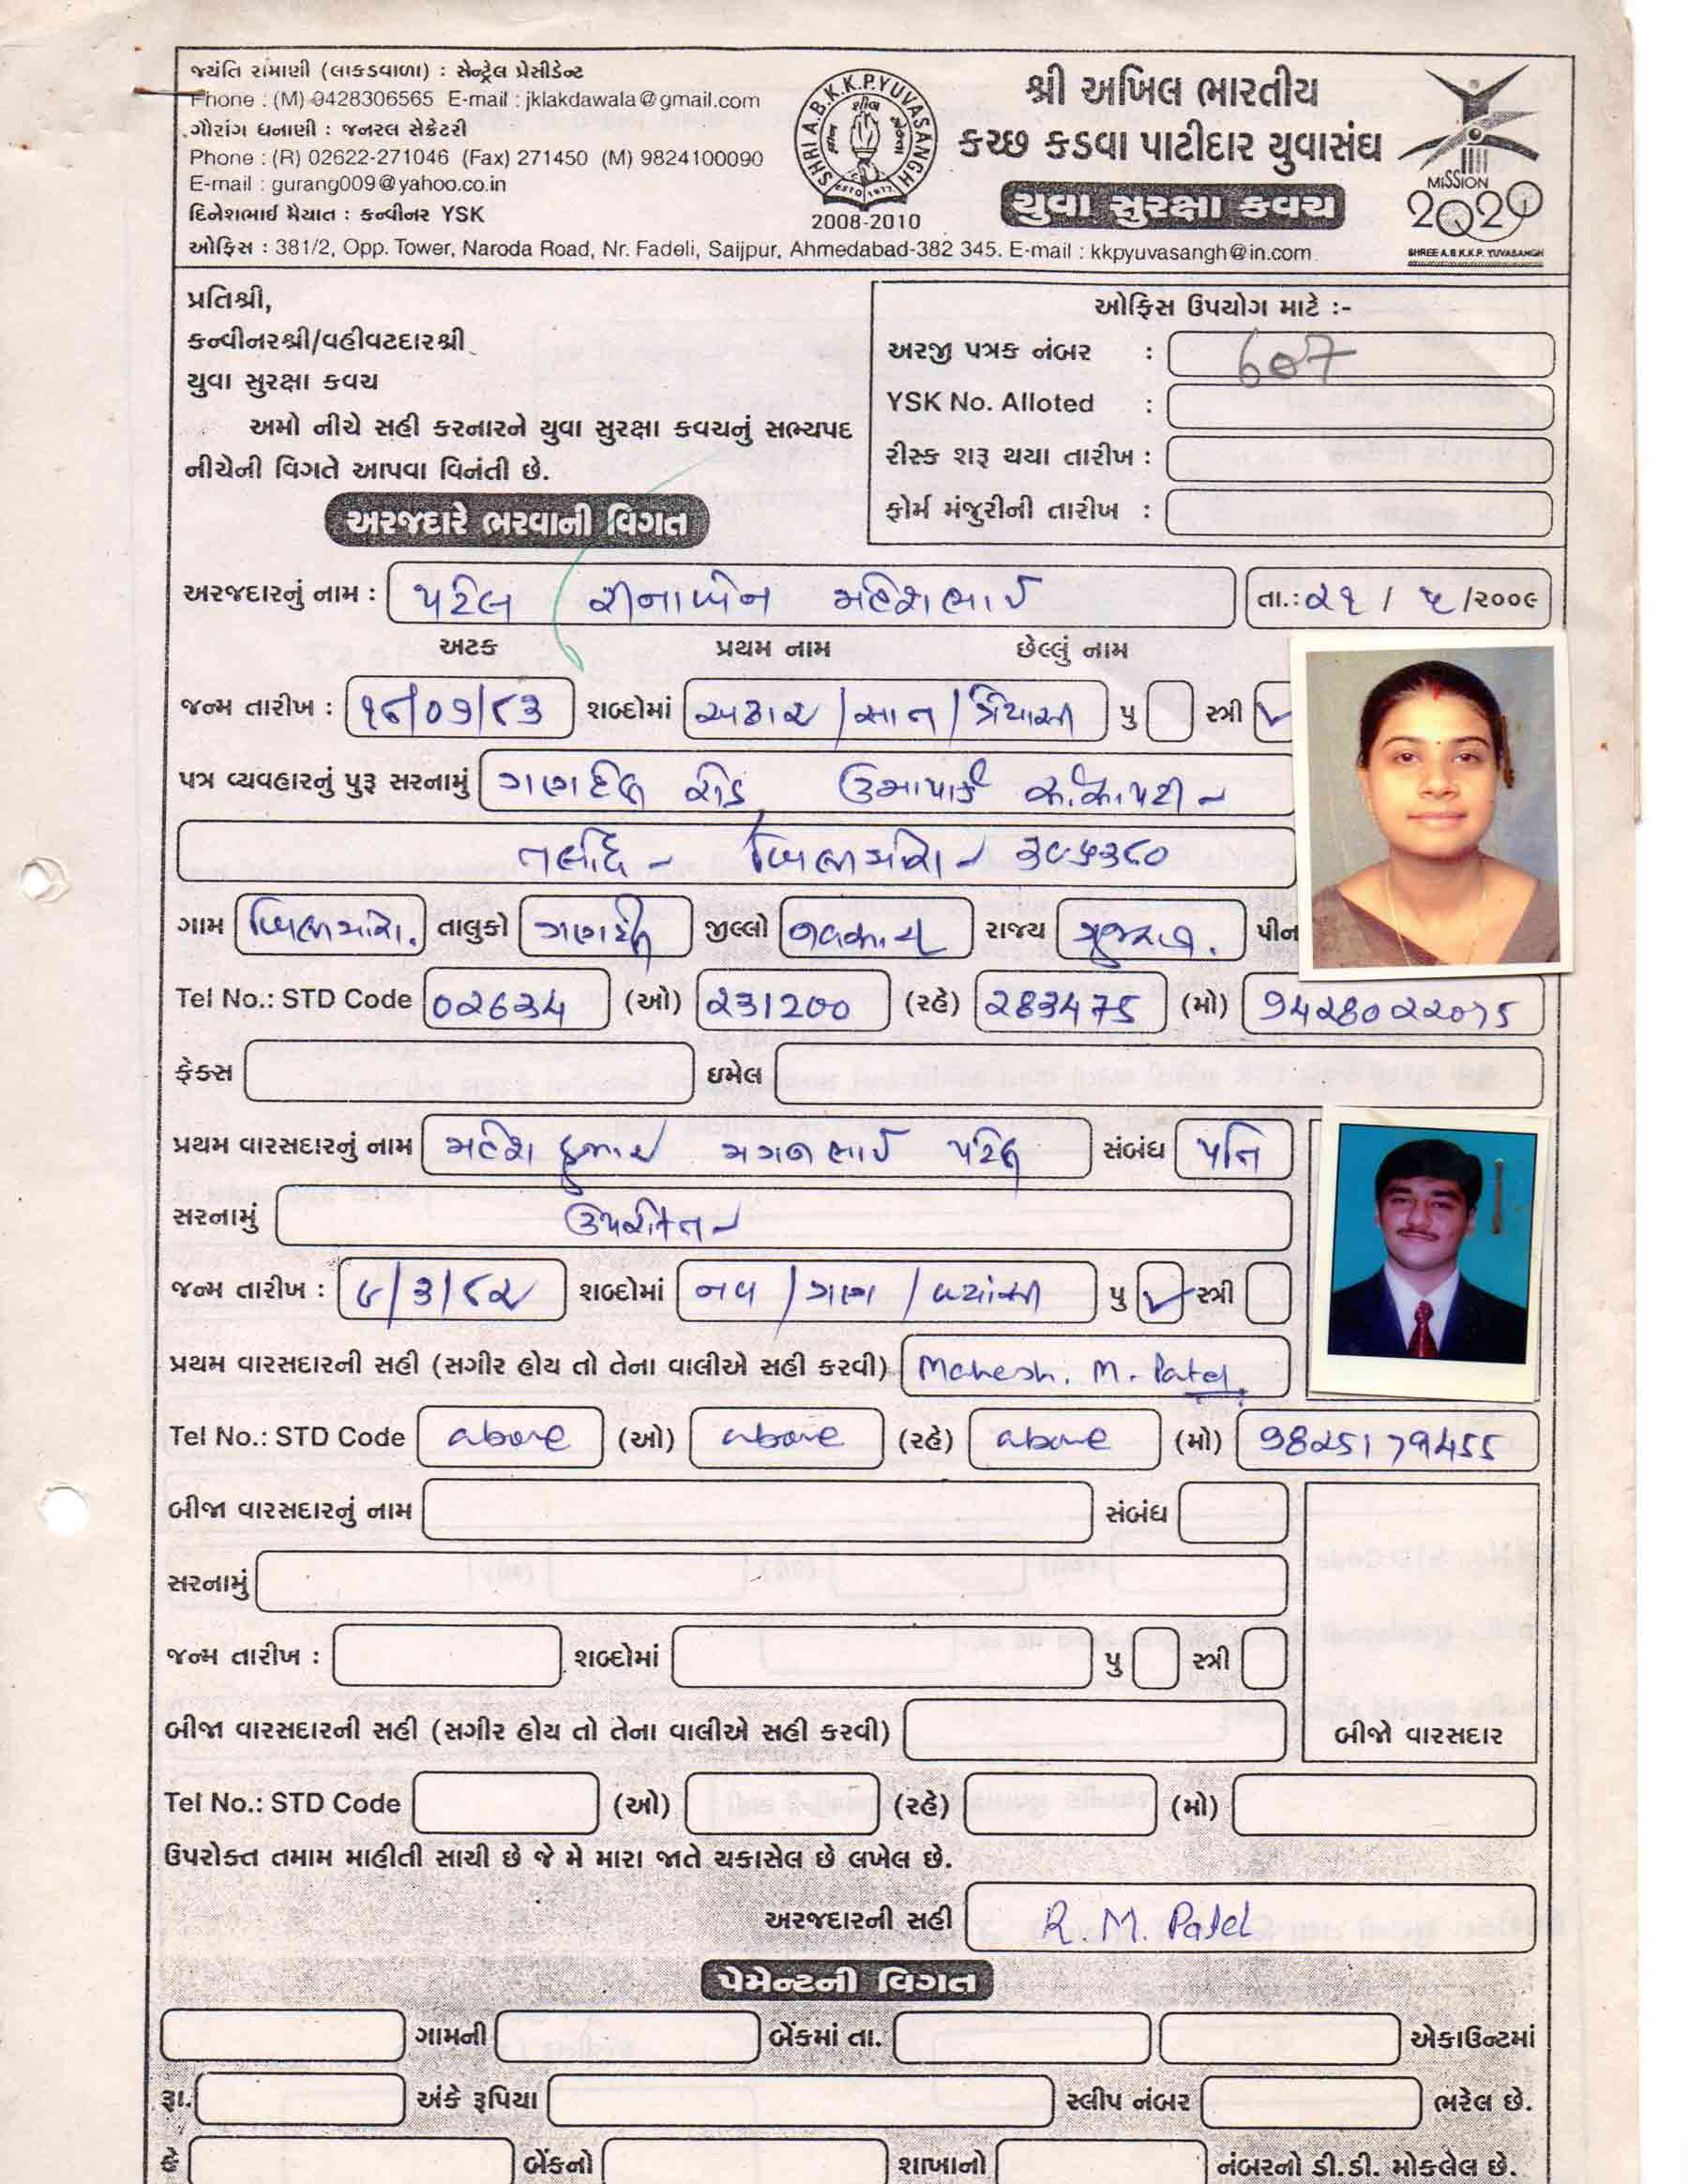 જયંતિ રામાણી (લાકડાવાળા) : સેન્ટ્રેલ પ્રેસીડેન્ટ
Phone : (M) 9428306565 E-mail : jklakdawala@gmail.com
ગૌરાંગ ધનાણી : જનરલ સેક્રેટરી
Phone : (R) 02622-271046 (Fax) 271450 (M) 9824100090
E-mail : gurang009@yahoo.co.in
દિનેશભાઈ મૈયાત : કન્વીનર YSK
SHRI A.B.K.K.P.YUVASANGH
ESTD 1977
2008-2010
શ્રી અખિલ ભારતીય
કચ્છ કડવા પાટીદાર યુવાસંઘ
યુવા સુરક્ષા કવચ
MiSSION
2020
SHREE A.B.K.K.P. YUVASANGH
ઓફિસ : 381/2, Opp. Tower, Naroda Road, Nr. Fadeli, Saijpur, Ahmedabad-382 345. E-mail : kkpyuvasangh@in.com
પ્રતિશ્રી,
કન્વીનરશ્રી/વહીવટદારશ્રી
યુવા સુરક્ષા કવચ
અમો નીચે સહી કરનારને યુવા સુરક્ષા કવચનું સભ્યપદ
નીચેની વિગતે આપવા વિનંતી છે.
ઓફિસ ઉપયોગ માટે :-
અરજી પત્રક નંબર : 607
YSK No. Alloted :
રીસ્ક શરૂ થયા તારીખ :
ફોર્મ મંજુરીની તારીખ :
અરજદારે ભરવાની વિગત
અરજદારનું નામ : પટેલ રીનાબેન મહેશભાઈ તા.: ૨૧ / ૫ /૨૦૦૯
અટક પ્રથમ નામ છેલ્લું નામ
જન્મ તારીખ : ૧૮/૦૭/૮૩ શબ્દોમાં અઢાર / સાત / ત્રિયાસી પુ સ્ત્રી ✓
પત્ર વ્યવહારનું પુરૂ સરનામું ગણદેવી રોડ, ઉમાપાર્ક સોસાયટી -
તલોધ - બિલીમોરા - ૩૯૬૩૮૦
ગામ બિલીમોરા. તાલુકો ગણદેવી જીલ્લો નવસારી રાજ્ય ગુજરાત. પીન
Tel No.: STD Code 02634 (ઓ) 231200 (રહે) 283475 (મો) 9428022075
ફેક્સ ઇમેલ
પ્રથમ વારસદારનું નામ મહેશકુમાર મગનભાઈ પટેલ સંબંધ પતિ
સરનામું ઉપરોક્ત -
જન્મ તારીખ : ૯/૩/૮૨ શબ્દોમાં નવ / ત્રણ / બ્યાંસી પુ ✓ સ્ત્રી
પ્રથમ વારસદારની સહી (સગીર હોય તો તેના વાલીએ સહી કરવી) Mahesh. M. Patel.
Tel No.: STD Code above (ઓ) above (રહે) above (મો) 9825179455
બીજા વારસદારનું નામ સંબંધ
સરનામું
જન્મ તારીખ : શબ્દોમાં પુ સ્ત્રી
બીજા વારસદારની સહી (સગીર હોય તો તેના વાલીએ સહી કરવી)
બીજો વારસદાર
Tel No.: STD Code (ઓ) (રહે) (મો)
ઉપરોક્ત તમામ માહીતી સાચી છે જે મે મારા જાતે ચકાસેલ છે લખેલ છે.
અરજદારની સહી R. M. Patel
પેમેન્ટની વિગત
ગામની બેંકમાં તા. એકાઉન્ટમાં
રૂા. અંકે રૂપિયા સ્લીપ નંબર ભરેલ છે.
કે બેંકનો શાખાનો નંબરનો ડી.ડી. મોકલેલ છે.